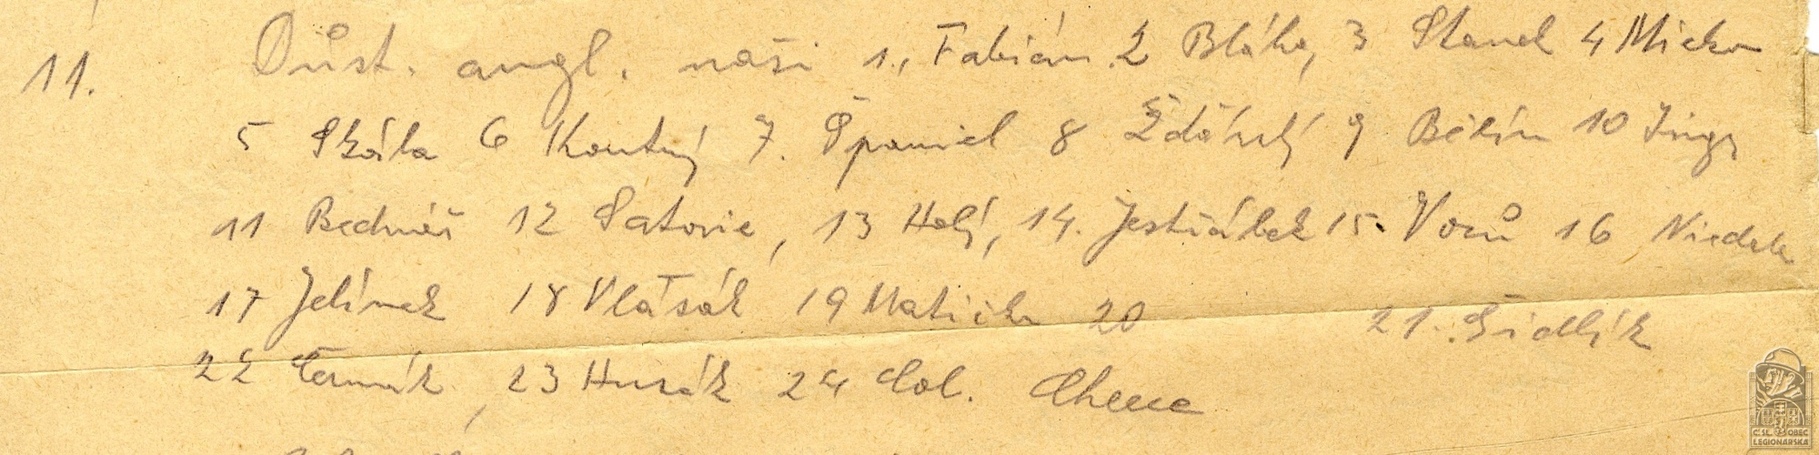 11. Důst. angl. naši 1., Fabián. 2 Bláha, 3 Staněk 4 Micka
5 Skála 6 Koutný 7. Španiel 8 Žďárský 9 Bělín 10 Ingr
11 Bednář 12 Satorie, 13 Holý, 14. Jestřábek 15. Vorů 16 Niedak
17 Jelínek 18 Vlasák 19 Matička 20 21. Šidlík
22 Čermák, 23 Husák 24 Col. Chene
ČSL. OBEC
LEGIONÁŘSKÁ